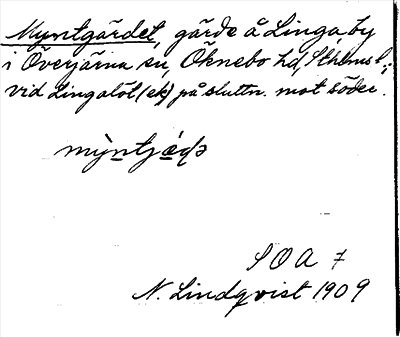 Myntgärdet, gärde å Linga by
i Överjärna sn, Öknebo hd, Sthlms l.;
vid Lingalöt (ek) på sluttn. mot söder.
SOA 7
N. Lindqvist 1909